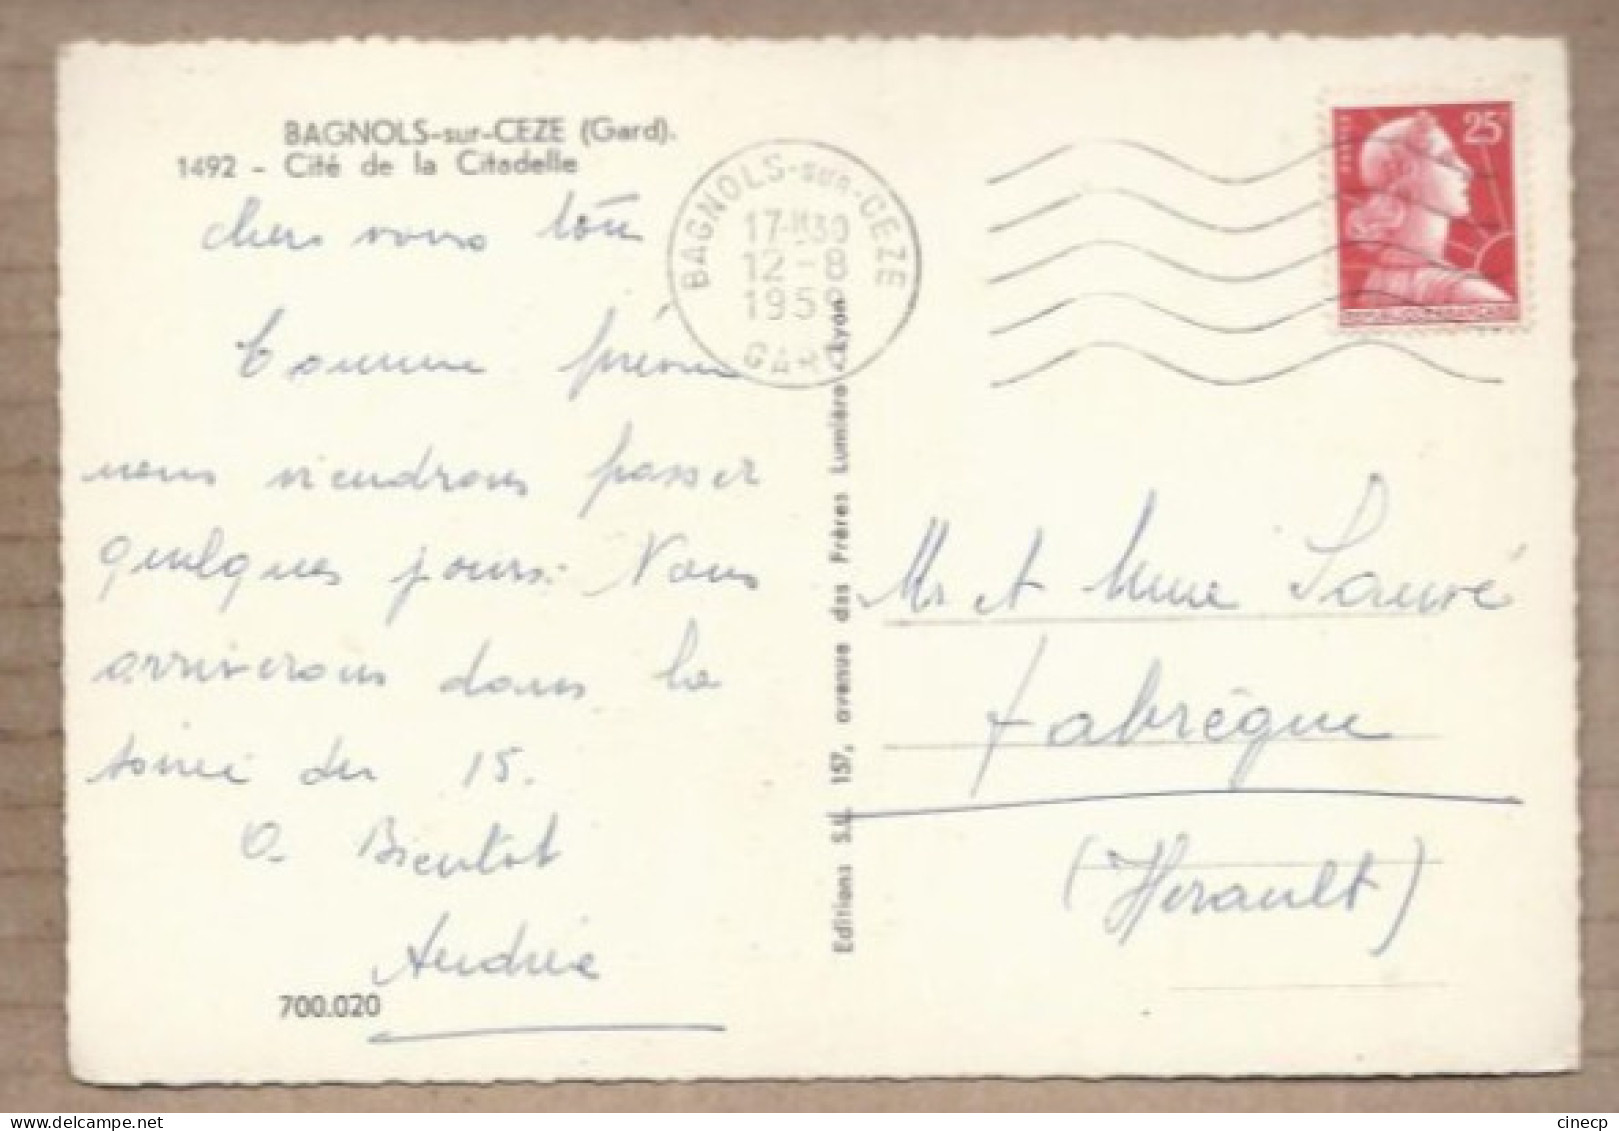 BAGNOLS-sur-CEZE (Gard).
1492 - Cité de la Citadelle
chers vous tous
Comme prévu
nous viendrons passer
quelques jours. Nous
arriverons dans la
soirée du 15.
A Bientot
Andrée
700.020
BAGNOLS-sur-CEZE
17-H30
12-8
1959
GARD
Editions S.L. 157, avenue des Frères Lumière - Lyon
25
POSTES
REPUBLIQUE FRANÇAISE
Mr et Mme Sauvé
Fabrègue
(Herault)
cinecp